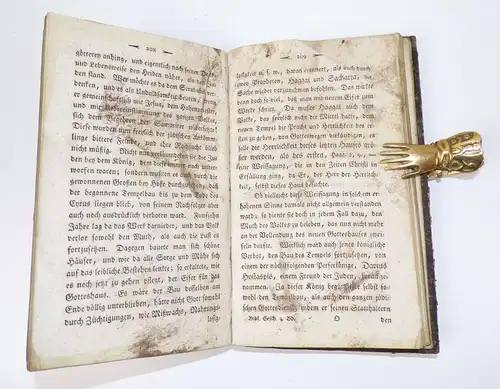 — 208 —
götterey anhing, und eigentlich nach seinen
und Lebensweise den Heiden näher, als den
den stand. Wer möchte es da dem Serubabel
denken, und es als Unduldsamkeit deuten,
er gemeinschaftlich mit Jesua, dem Hohenpriester
und mit Uebereinstimmung des ganzen Volks,
sich dem Begehren der Samariter widersetzte?
Diese wurden nun freilich der jüdischen Ansiedelung
linge bittere Feinde, und ihre Rachsucht blieb
nicht müßig. Nicht nur verläumdeten sie die Juden
bey dem König, dem diese unterthan
waren, sondern es wußten dann auch durch die
gewonnenen Großen des Hofs durchzusetzen, daß
der begonnene Tempelbau bis zu dem Tode des
Cyrus liegen blieb, und von seinem Nachfolger aber
auch noch ausdrücklich verboten ward. Funfzehn
Jahre lag da das Werk darnieder, und das Volk
verlor sowohl den Muth, als auch die Lust es
fortzusetzen. Dagegen bauete man sich schöne
Häuser, und wie man alle Sorge und Mühe sich
auf das leibliche Bestehen lenkte; so erkaltete, wie
es noch jetzt zu gehen pflegt, der Eifer für das
Gotteshaus. Es wäre der Bau desselben am
Ende völlig unterblieben, hätte nicht Gott sowohl
durch Züchtigungen, wie Mißwachs, Nahrungs-
losig-
— 209 —
losigkeit u. s. w. daran erinnert, als auch durch
zwey Propheten, Haggai und Sacharja, das
Werk wieder vorzunehmen befohlen. Das wirkte
denn doch so viel, daß man mit neuem Eifer zum
Werke schritt. Da mußte Haggai auch dem
Volke, das noch sonst nicht viel Muth hatte, dem
neuen Tempel die Pracht und Herrlichkeit des ersten
zu geben, den Gottesworspruch verkündigen, es
solle die Herrlichkeit dieses letzten Hauses größer
werden, als des ersten, Hagg. 2, 9. —
eine Weissagung, die in den Zeiten Christi in
Erfüllung ging, da Er, der Herr der Herrlichkeit,
selbst dieses Haus besuchte.
Ob vielleicht diese Weissagung in solchem erhabenen
Sinne damals nicht allgemein verstanden
ward; so diente sie doch in jedem Fall dazu, den
Muth des Volkes zu beleben, das nun nicht mehr
an der Vollendung des neuen Gotteshauses zweifeln
durfte. Wirklich ward auch jenes königliche
Verbot, den Bau des Tempels fortzusetzen, von
einem der nächstfolgenden Perserkönige, Darius
Hystaspis, einem Freund der Juden, zurück
genommen. Ja dieser König begünstigte selbst sowohl
den Tempelbau, als auch den ganzen jüdischen
Gottesdienst, indem er seinen Statthaltern
Bibl. Gesch. 2. Bd. O den